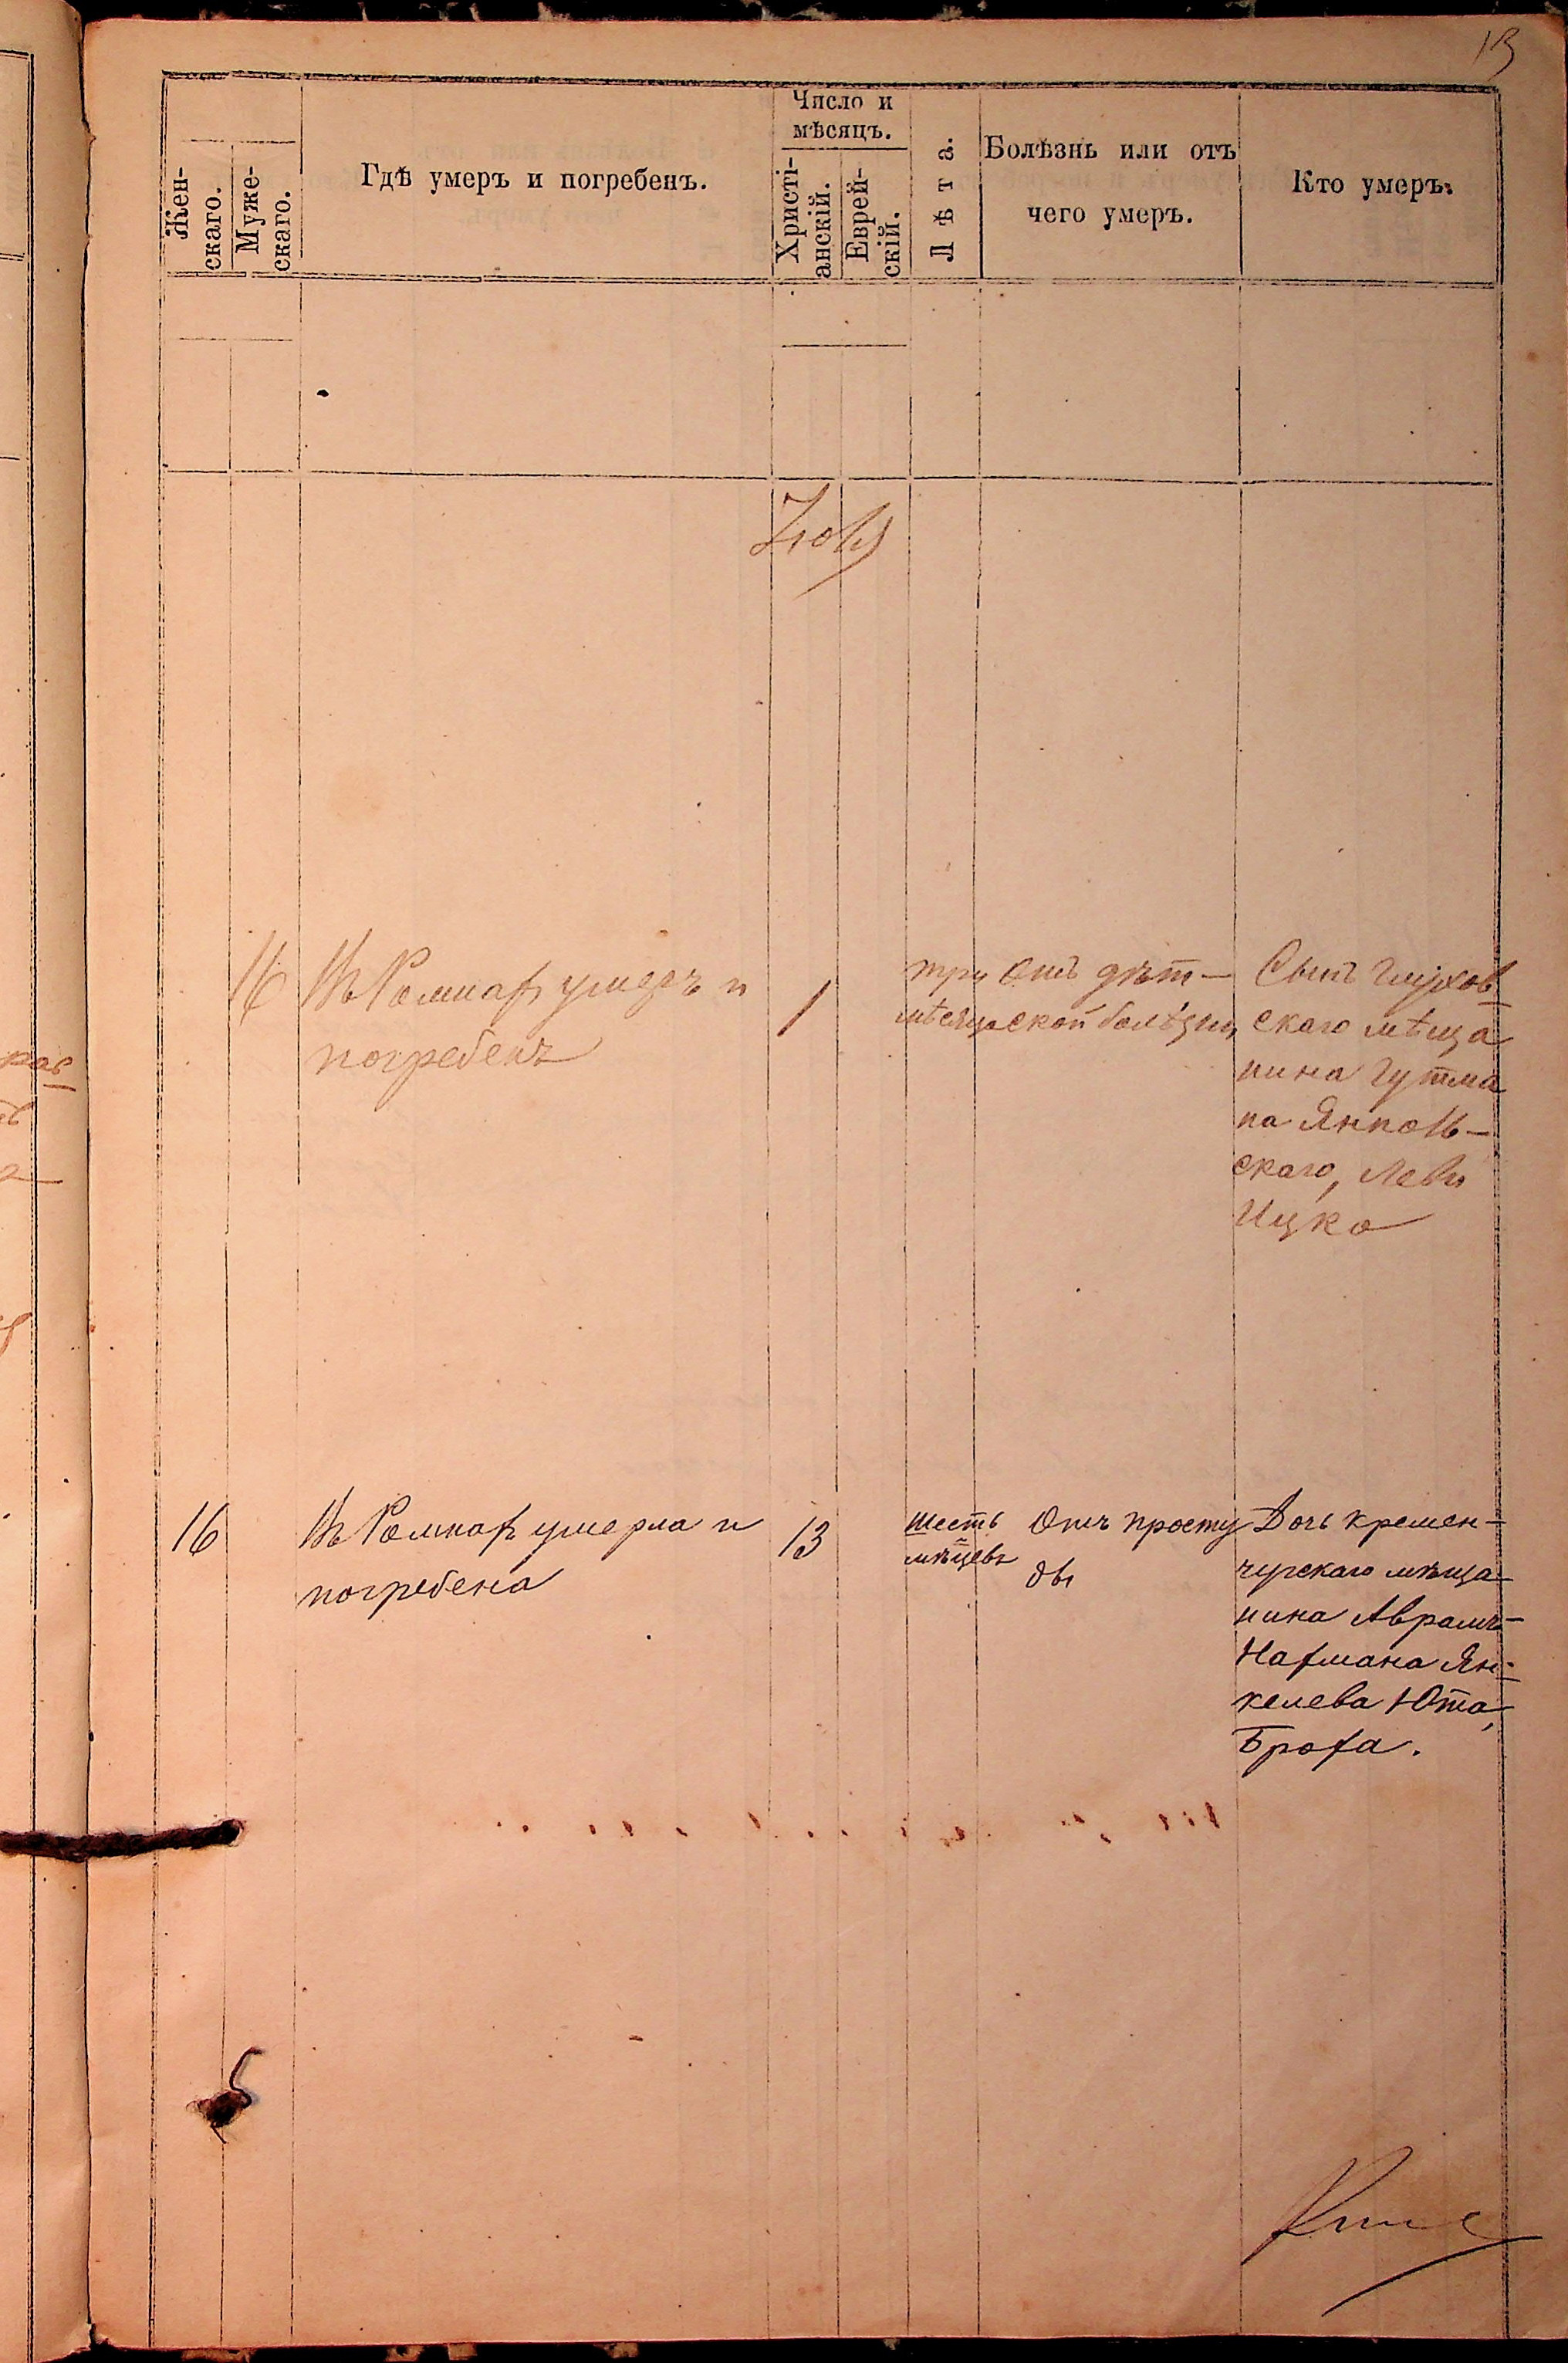 13
Жен-
скаго.
Муже-
скаго.
Гдѣ умеръ и погребенъ.
Число и
мѣсяцъ.
Христі-
анскій.
Еврей-
скій.
Лѣта.
Болѣзнь или отъ
чего умеръ.
Кто умеръ.
Іюль
16
Въ Ромнахъ умеръ и
погребенъ
1
три
мѣсяца
Отъ дѣт-
ской болѣзни
Сынъ Глухов
скаго мѣща
нина Гутма
на Янполь-
скаго, Левъ
Ицко
16
Въ Ромнахъ умерла и
погребена
13
шесть
мѣцевъ
Отъ просту
ды
Дочь Кремен-
чугскаго мѣща-
нина Аврамъ-
Нахмана Ян-
келева Юта,
Броха.